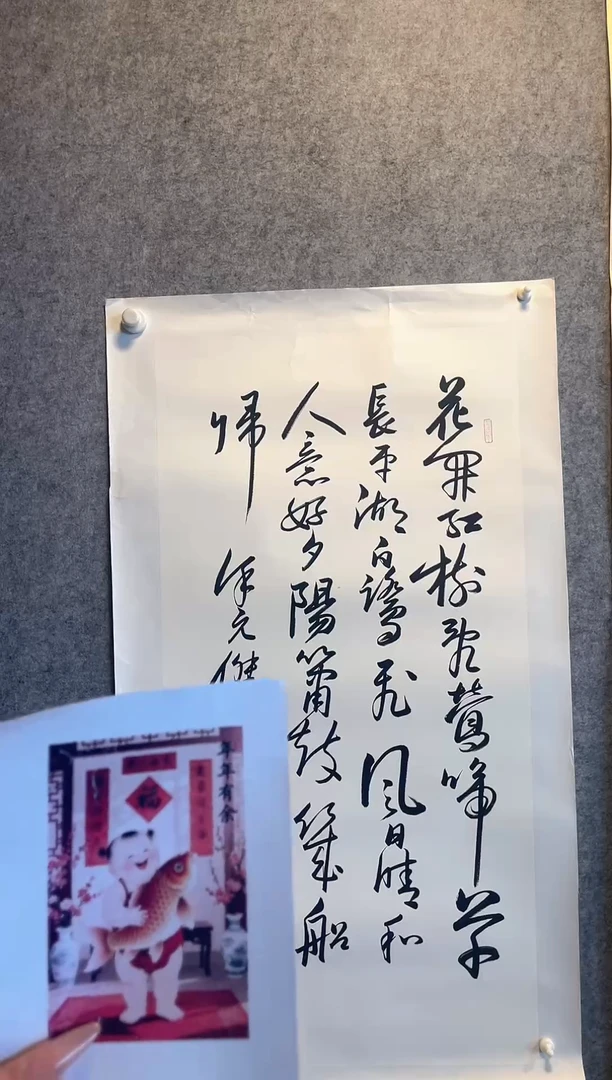 花開紅樹亂鶯啼草
長平湖白鷺飛風日晴和
人意好夕陽簫鼓幾船
歸 徐元傑
年年有余
福